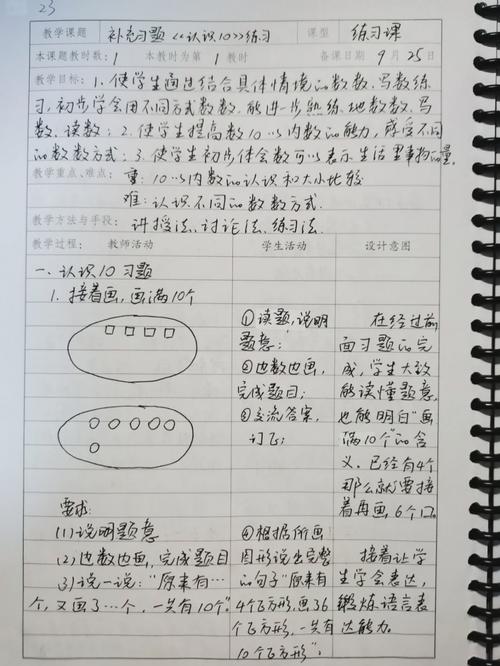 23
教学课题 补充习题《认识10》练习 课型 练习课
本课题教时数：1 本教时为第 1 教时 备课日期 9 月 25 日
教学目标：1、使学生通过结合具体情境的数数、写数练
习，初步学会用不同方式数数，能进一步熟练地数数、写
数、读数；2、使学生提高数10以内数的能力，感受不同
的数数方式；3、使学生初步体会数可以表示生活里事物的量。
教学重点、难点： 重：10以内数的认识和大小比较
难：认识不同的数数方式
教学方法与手段： 讲授法、讨论法、练习法
教学过程： 教师活动 学生活动 设计意图
一、认识10习题
1、接着画，画满10个
要求：
(1)说明题意
(2)边数边画，完成题目
(3)说一说：“原来有…
个，又画了…个，一共有10个”
①读题，说明
题意；
②边数边画，
完成题目；
③交流答案，
订正；
④根据所画
图形说出完整
的句子“原来有
4个正方形，画了6
个正方形，一共有
10个正方形”；
在经过前
面习题的完
成，学生大致
能读懂题意，
也能明白“画
满10个”的含
义。已经有4个
那么就要接
着再画6个口。
接着让学
生学会表达，
锻炼语言表
达能力。